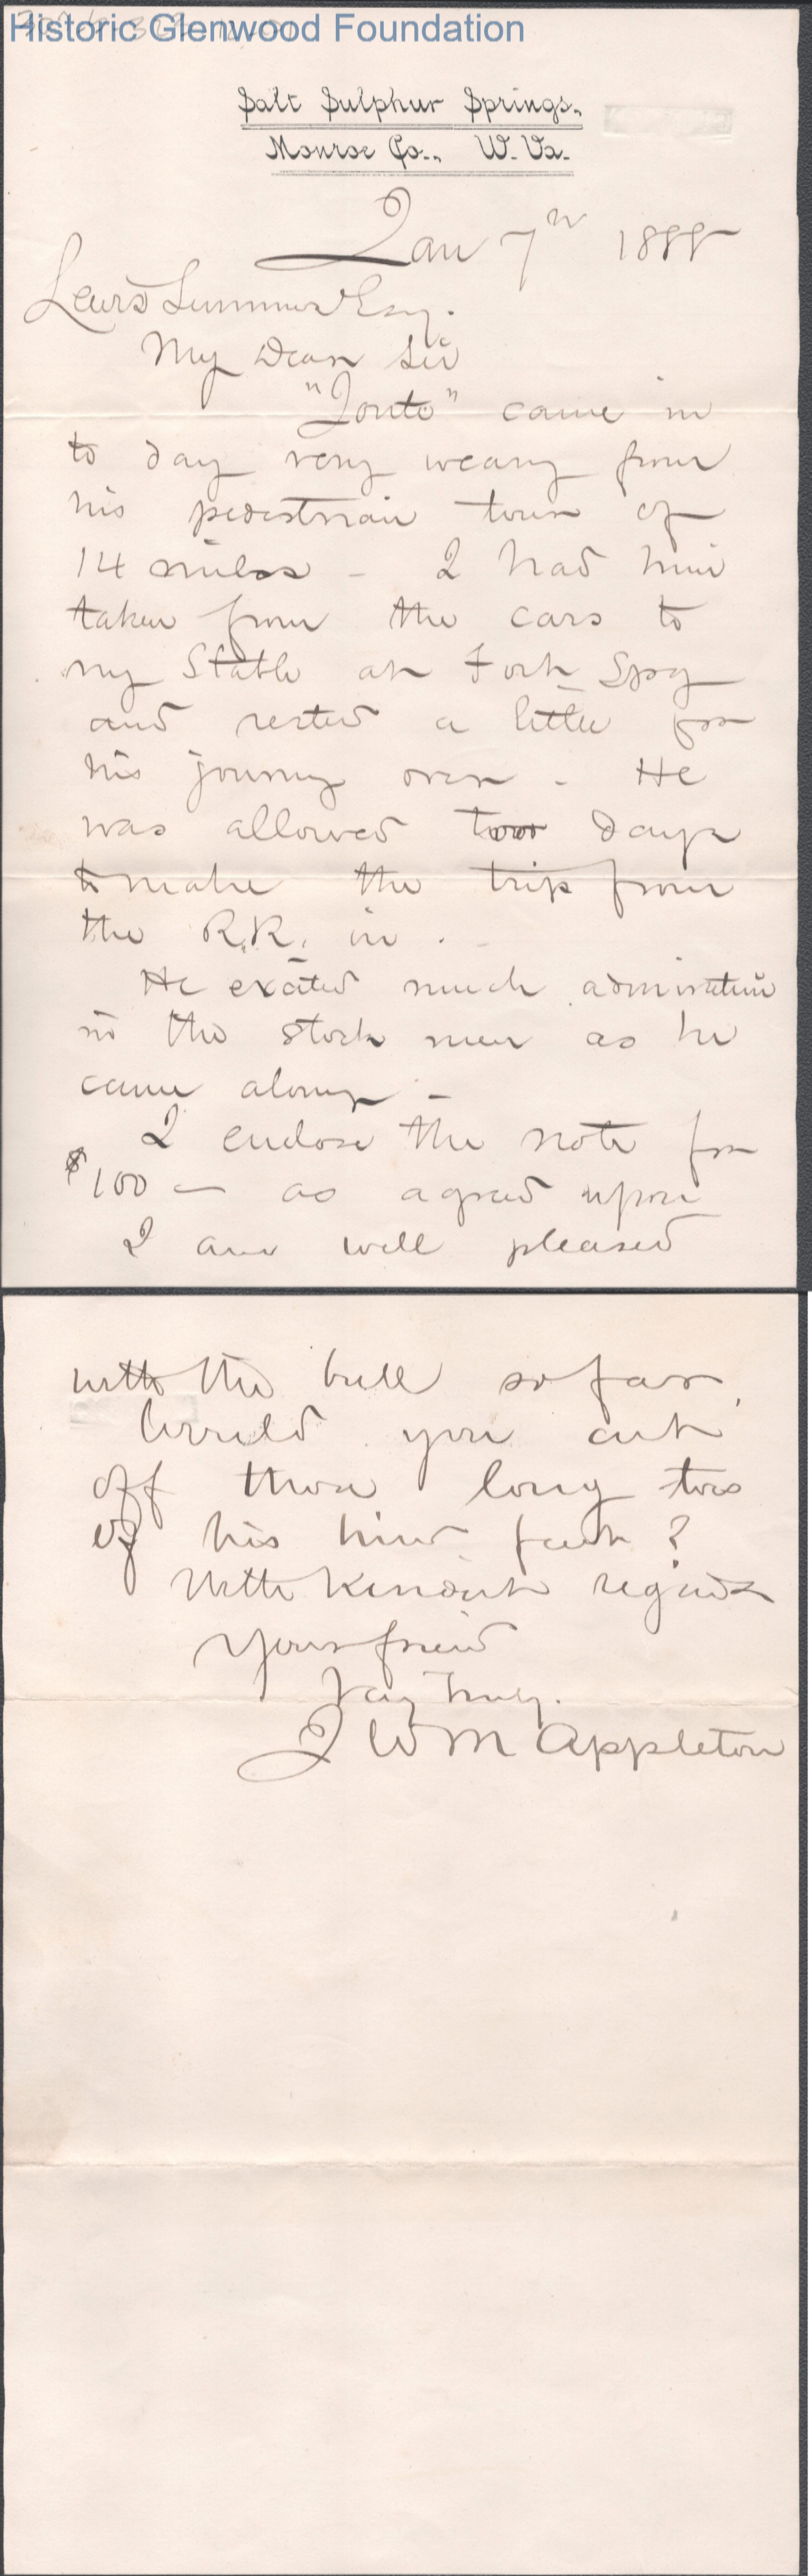 Historic Glenwood Foundation
Salt Sulphur Springs.
Monroe Co., W. Va.
Jan 7th 1888
Lewis Summers Esq.
My Dear Sir
" " came in
to day very weary from
his pedestrian tour of
14 miles - I had him
taken from the cars to
my Stable at Fort Spg
and rested a little for
his journey over - He
was allowed two days
to make the trip from
the R.R. in . -
He excited much admiration
in the stock men as he
came along -
I enclose the note for
$100 — as agreed upon
I am well pleased
with the bull so far,
Would you cut
off those long toes
of his hind feet ?
With Kindest regards
Your friend
Very Truly.
J W M Appleton